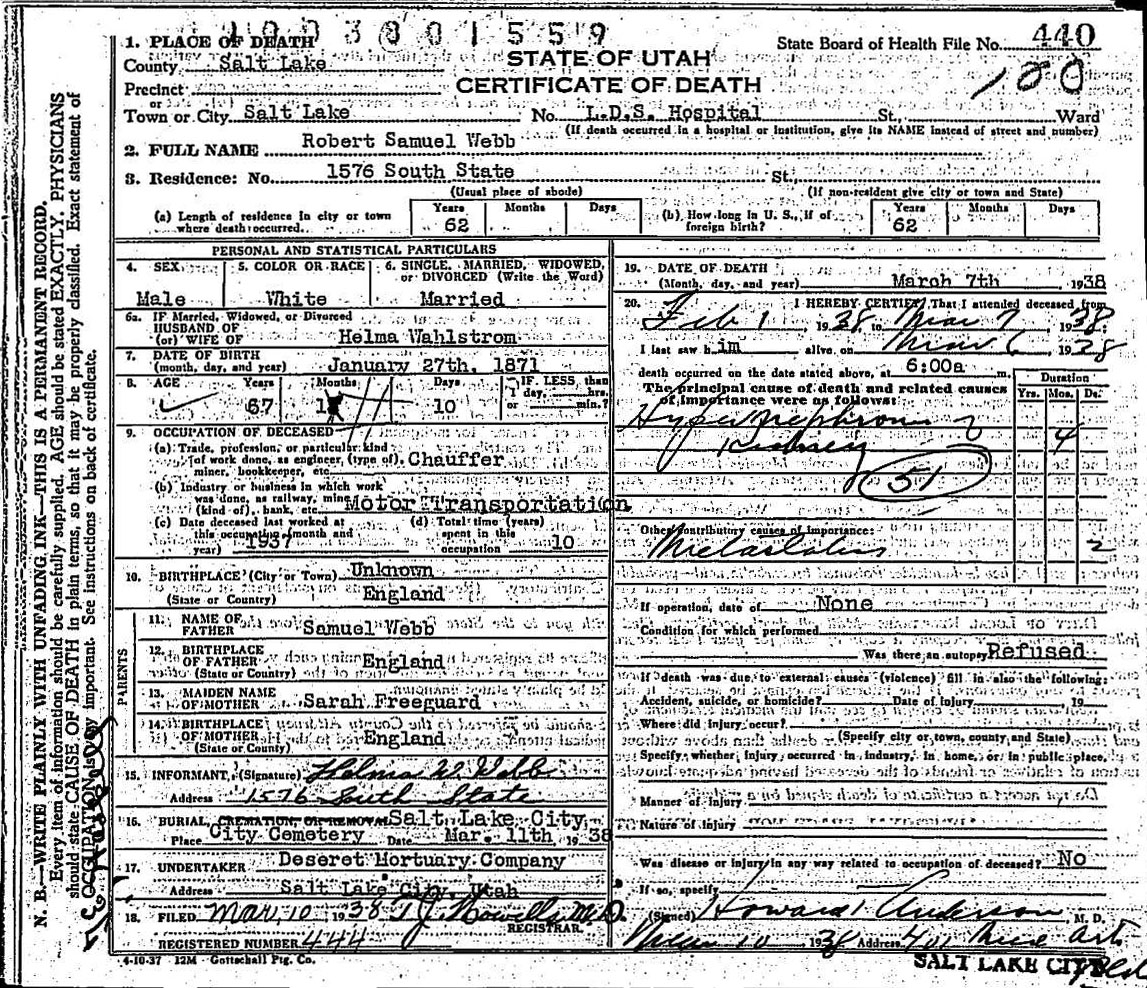 1003801559
1. PLACE OF DEATH
STATE OF UTAH
CERTIFICATE OF DEATH
State Board of Health File No. 440
County Salt Lake
Precinct
180
or
Town or City Salt Lake No. L.D.S. Hospital St., Ward
(If death occurred in a hospital or institution, give its NAME instead of street and number)
2. FULL NAME Robert Samuel Webb
3. Residence: No. 1576 South State St.
(Usual place of abode) (If non-resident give city or town and State)
(a) Length of residence in city or town where death occurred. Years 62 Months Days
(b) How long in U. S., if of foreign birth? Years 62 Months Days
PERSONAL AND STATISTICAL PARTICULARS
4. SEX Male
5. COLOR OR RACE White
6. SINGLE, MARRIED, WIDOWED, or DIVORCED (Write the Word) Married
6a. IF Married, Widowed, or Divorced
HUSBAND OF
(or) WIFE OF Helma Wahlstrom
7. DATE OF BIRTH
(month, day, and year) January 27th, 1871
8. AGE Years 67 Months 1 Days 10 IF LESS than 1 day, hrs. or min.?
9. OCCUPATION OF DECEASED
(a) Trade, profession, or particular kind of work done, as engineer, (type of) miner, bookkeeper, etc. Chauffer
(b) Industry or business in which work was done, as railway, mine (kind of), bank, etc. Motor Transportation
(c) Date deceased last worked at this occupation (month and year) 1937
(d) Total time (years) spent in this occupation 10
10. BIRTHPLACE (City or Town) Unknown
(State or Country) England
PARENTS
11. NAME OF FATHER Samuel Webb
12. BIRTHPLACE OF FATHER England
(State or Country)
13. MAIDEN NAME OF MOTHER Sarah Freeguard
14. BIRTHPLACE OF MOTHER England
(State or County)
15. INFORMANT, (Signature) Helma W. Webb
Address 1576 South State
16. BURIAL, CREMATION, OR REMOVAL Salt Lake City
Place City Cemetery Date Mar. 11th, 1938
17. UNDERTAKER Deseret Mortuary Company
Address Salt Lake City, Utah
18. FILED Mar. 10 1938 T. J. Howells M.D.
REGISTRAR.
REGISTERED NUMBER 444
4-10-37 12M Gottschall Ptg. Co.
19. DATE OF DEATH
(Month, day, and year) March 7th, 1938
20. I HEREBY CERTIFY, That I attended deceased from
Feb 1, 1938 to Mar 7, 1938
I last saw him alive on Mar 6, 1938
death occurred on the date stated above, at 6:00a m.
The principal cause of death and related causes of importance were as follows:
Duration
Yrs. Mos. Ds.
Hypernephroma of 4
Kidney
51
Other contributory causes of importance:
Metastasis 2
If operation, date of None
Condition for which performed
Was there an autopsy Refused
If death was due to external causes (violence) fill in also the following:
Accident, suicide, or homicide? Date of injury , 19
Where did injury occur?
(Specify city or town, county, and State)
Specify whether injury occurred in industry, in home, or in public place.
Manner of injury
Nature of injury
Was disease or injury in any way related to occupation of deceased? No
If so, specify
(Signed) Howard T Anderson, M. D.
Mar 10 1938 Address 401 Med Arts
SALT LAKE CITY Bld
N. B.—WRITE PLAINLY WITH UNFADING INK—THIS IS A PERMANENT RECORD.
Every item of information should be carefully supplied. AGE should be stated EXACTLY. PHYSICIANS
should state CAUSE OF DEATH in plain terms, so that it may be properly classified. Exact statement of
OCCUPATION is very important. See instructions on back of certificate.